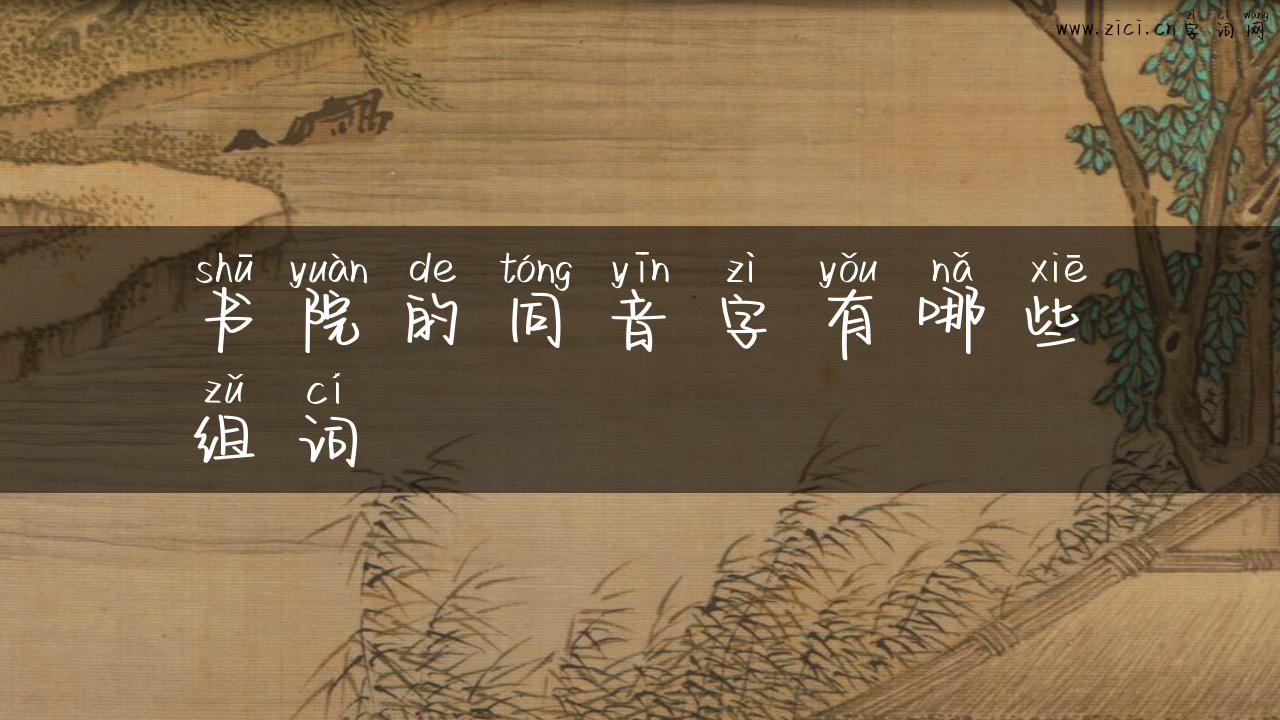 zì cí wǎng
www.zici.cn字词网
shū yuàn de tóng yīn zì yǒu nǎ xiē
书院的同音字有哪些
zǔ cí
组词